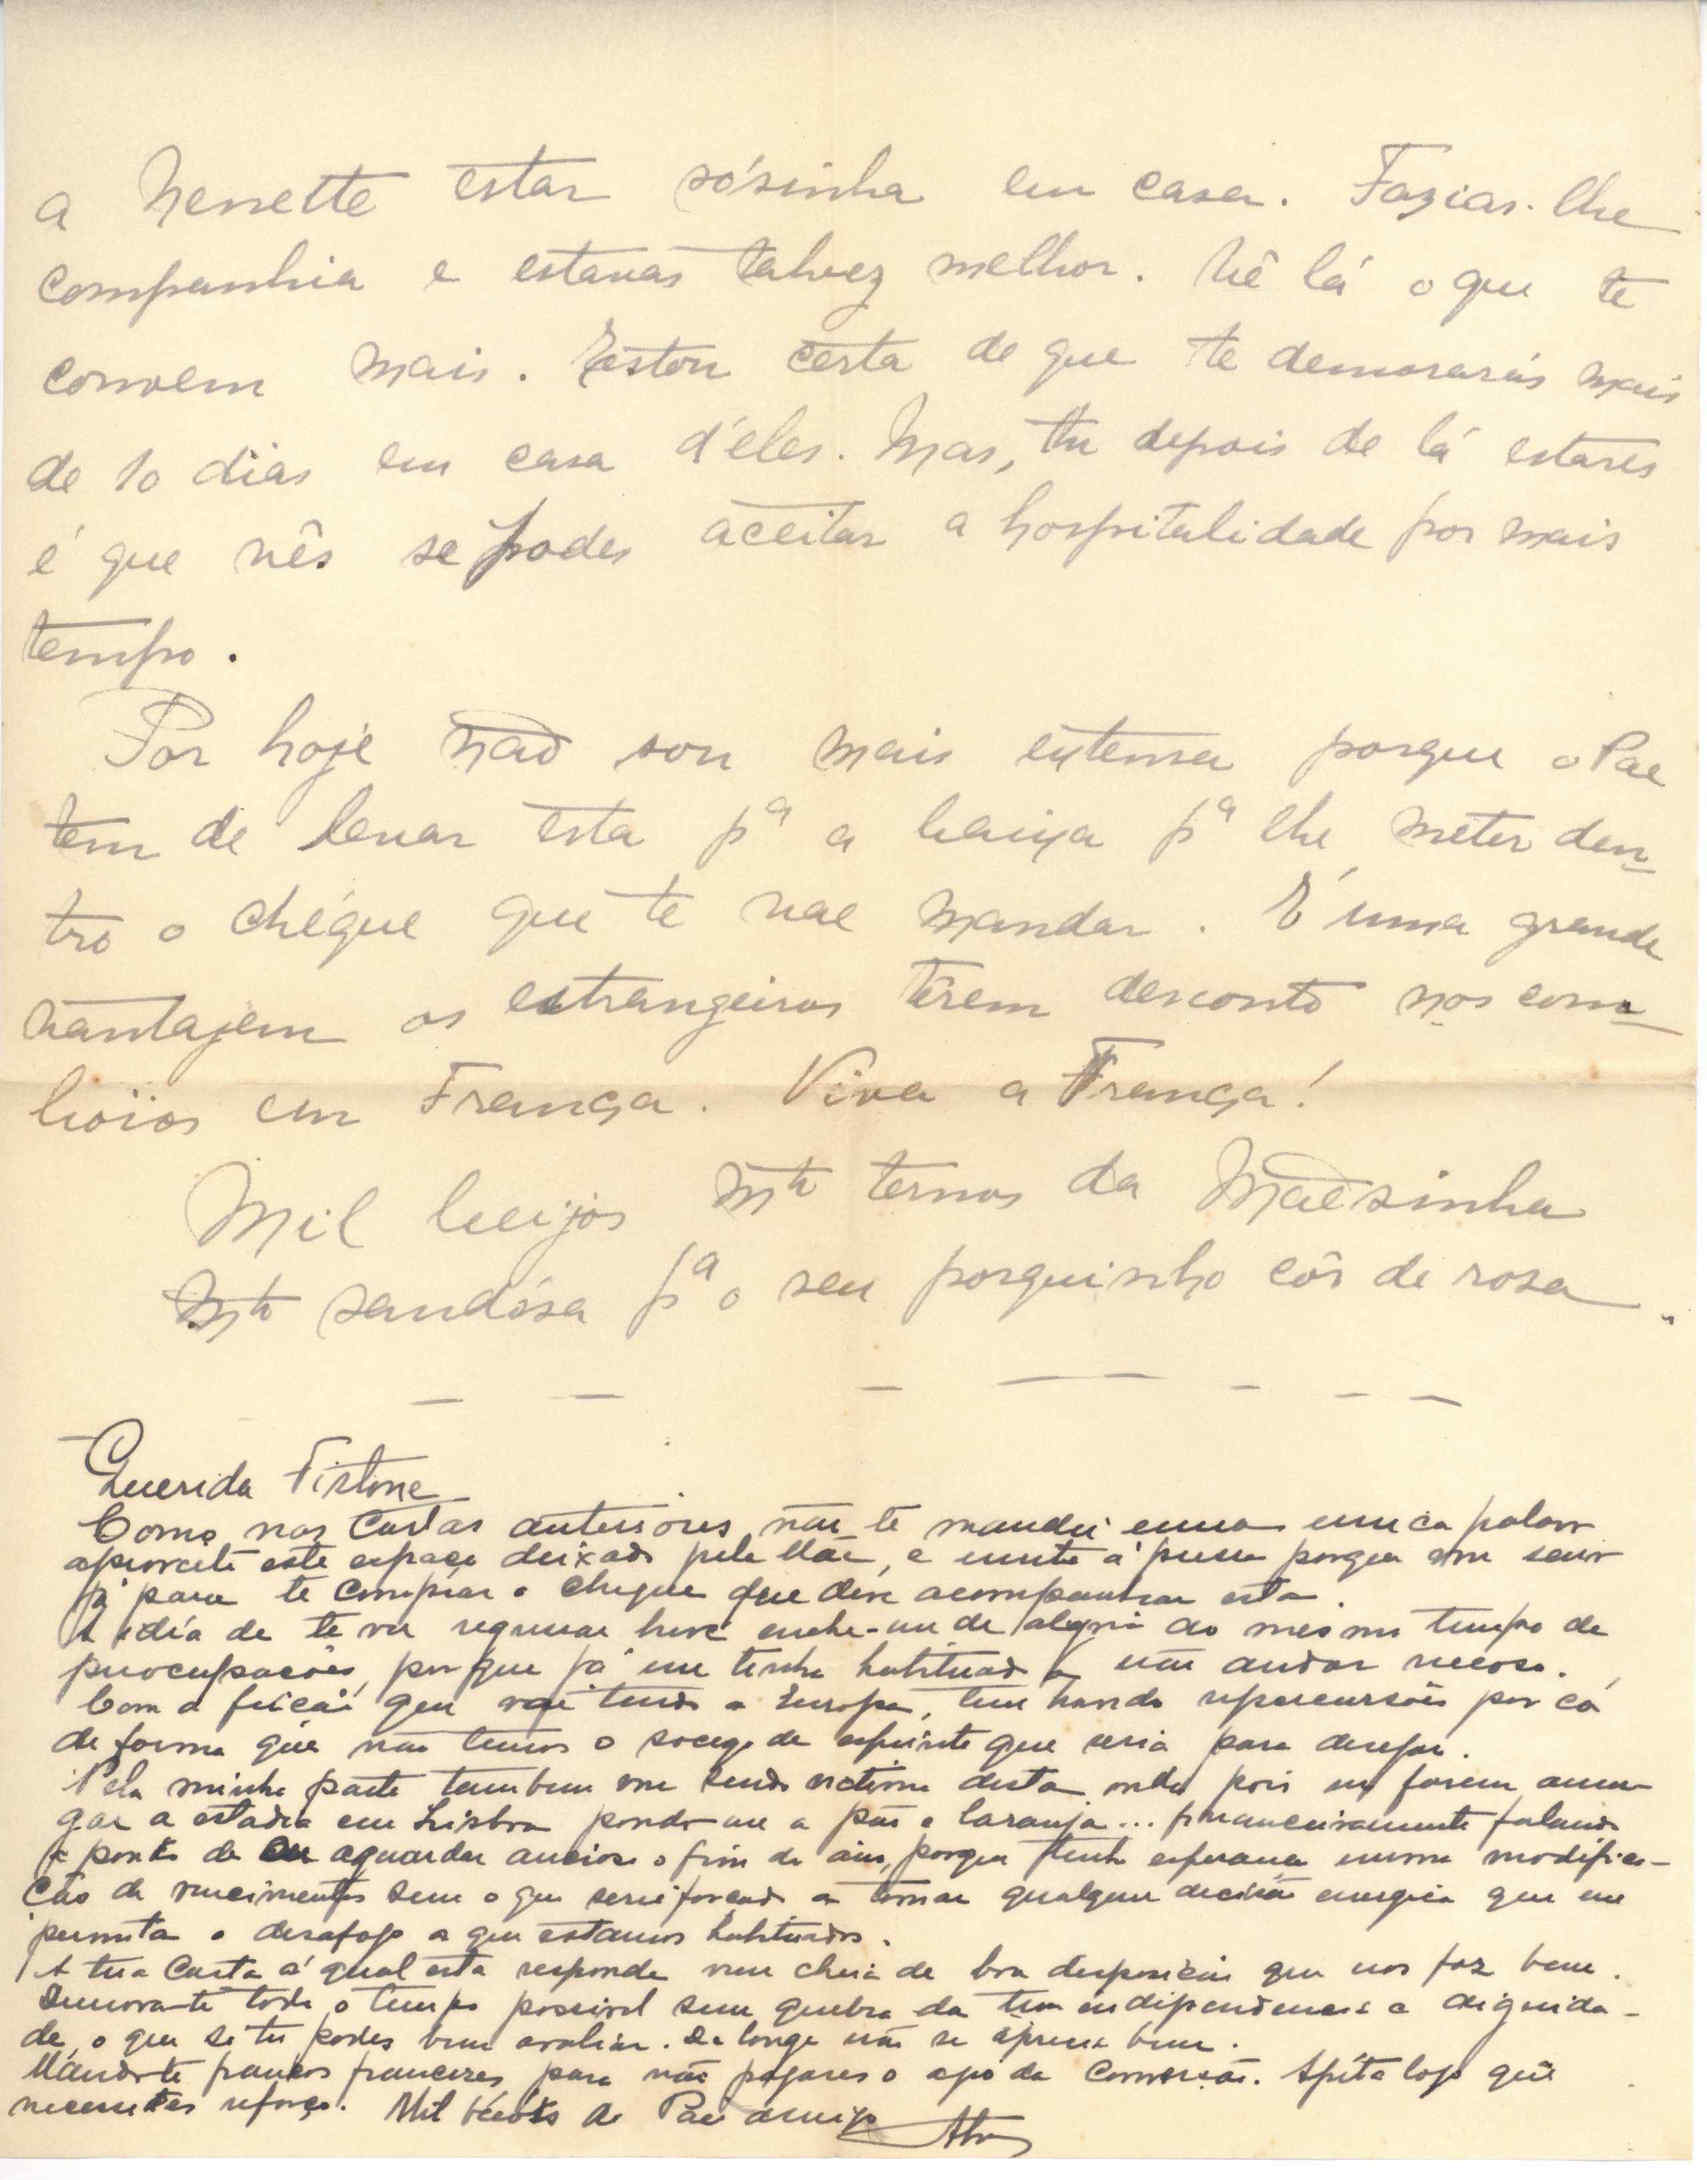 a Nenette estar sósinha em casa. Fazias-lhe
companhia e estavas talvez melhor. Vê lá o que te
convem mais. Estou certa de que te demorarás mais
de 10 dias em casa d'eles. Mas, tu depois de lá estares
é que vês se podes aceitar a hospitalidade por mais
tempo.
Por hoje não sou mais extensa porque o Pae
tem de levar esta pª a baixa pª lhe meter den-
tro o chéque que te vae mandar. É uma grande
vantajem os estrangeiros têrem desconto nos com-
boios em França. Viva a França!
Mil beijos mto ternos da Mãesinha
mto saudósa pª o seu porquinho côr de rosa.
Querida Fistone
Como nas cartas anteriores não te mandei uma unica palavr
aproveito este espaço deixado pela Mãe, e muito á pressa porque vou sair
já para te comprar o cheque que deve acompanhar esta.
A idéa de te ver regressar breve enche-me de alegria ao mesmo tempo de
preocupações, porque já me tinha habituado a não andar receoso.
Com a feição que vae tendo a Europa, tem havido repercursões por cá
de forma que não temos o socego de espirito que seria para desejar.
Pela minha parte tambem vou sendo victima desta onda pois me fazem amar-
gar a estadia em Lisboa pondo-me a pão e laranja... financeiramente falando
a ponto de eu aguardar ancioso o fim do ano, porque tenho esperança numa modifica-
ção de vencimentos sem o que serei forçado a tomar qualquer decisão energica que me
permita o desafogo a que estamos habituados.
A tua carta á qual esta responde vem cheia de boa disposição que nos faz bem.
Demora-te todo o tempo possivel sem quebra da tua independencia e dignida-
de, o que só tu podes bem avaliar. De longe não se aprecia bem.
Mando-te francos francezes para não pagares o agio da conversão. Apita logo que
necessites reforço. Mil beijos do Pae amigo